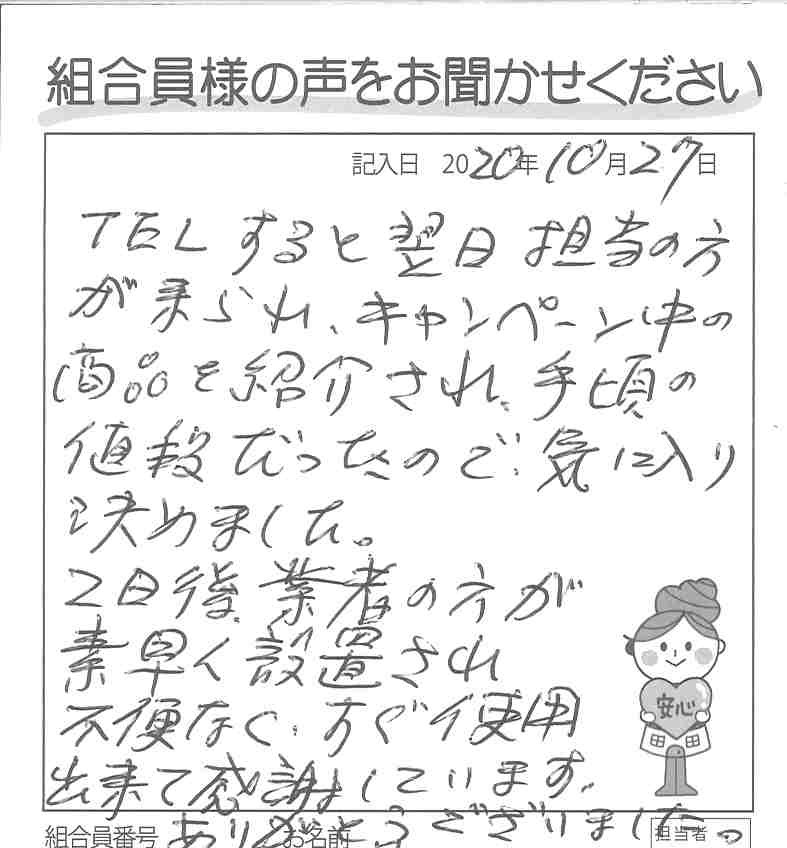 組合員様の声をお聞かせください
記入日 2020年10月27日
TELすると翌日担当の方
が来られ、キャンペーン中の
商品を紹介され、手頃の
値段だったので、気に入り
決めました。
2日後、業者の方が
素早く設置され
不便なく、すぐ使用
出来て感謝しています。
安心
ありがとうございました。
組合員番号 お名前 担当者